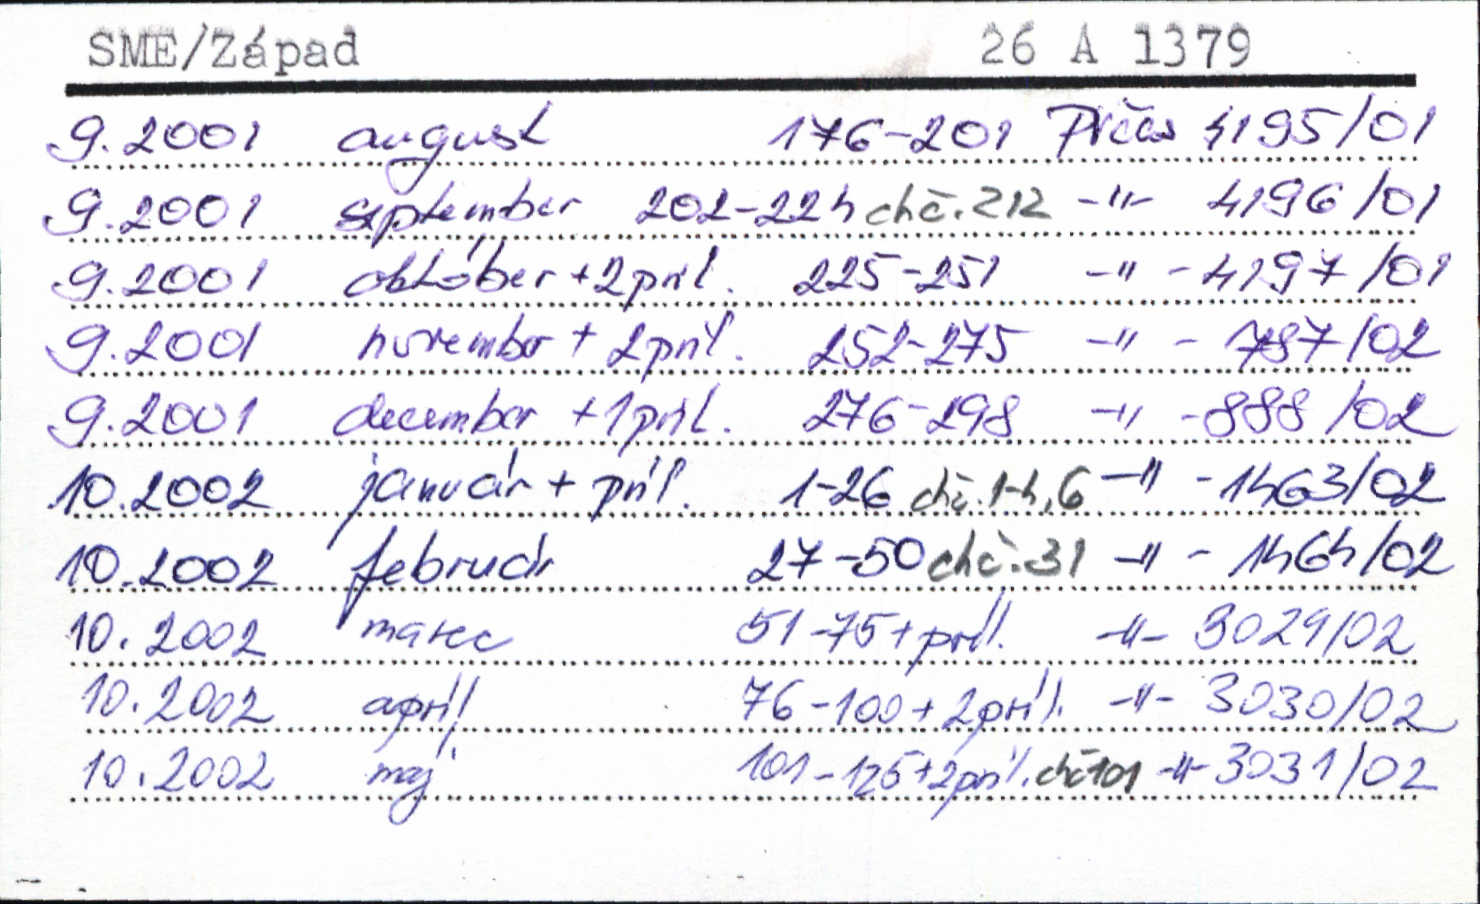 SME/Západ 26 A 1379
9.2001 august 176-201 Prčas 4195/01
9.2001 september 202-224 chč.212 -"- 4196/01
9.2001 október+2príl. 225-251 -"- 4197/01
9.2001 november + 2príl. 252-275 -"- 787/02
9.2001 december +1príl. 276-298 -"- 888/02
10.2002 január + príl. 1-26 chč.1-4,6 -"- 1463/02
10.2002 február 27-50 chč.31 -"- 1464/02
10.2002 marec 51-75+príl. -"- 3029/02
10.2002 apríl 76-100+2príl. -"- 3030/02
10.2002 máj 101-125+2príl. chč101 -"- 3031/02